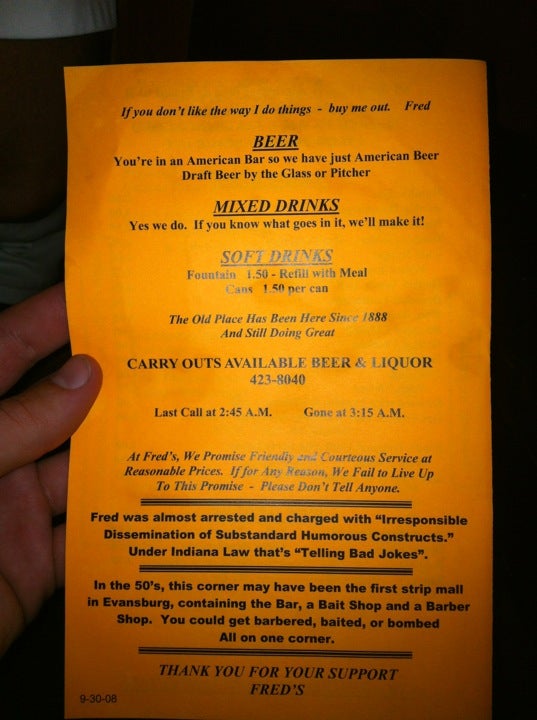 If you don't like the way I do things - buy me out. Fred
BEER
You're in an American Bar so we have just American Beer
Draft Beer by the Glass or Pitcher
MIXED DRINKS
Yes we do. If you know what goes in it, we'll make it!
SOFT DRINKS
Fountain 1.50 - Refill with Meal
Cans 1.50 per can
The Old Place Has Been Here Since 1888
And Still Doing Great
CARRY OUTS AVAILABLE BEER & LIQUOR
423-8040
Last Call at 2:45 A.M. Gone at 3:15 A.M.
At Fred's, We Promise Friendly and Courteous Service at
Reasonable Prices. If for Any Reason, We Fail to Live Up
To This Promise - Please Don't Tell Anyone.
Fred was almost arrested and charged with "Irresponsible
Dissemination of Substandard Humorous Constructs."
Under Indiana Law that's "Telling Bad Jokes".
In the 50's, this corner may have been the first strip mall
in Evansburg, containing the Bar, a Bait Shop and a Barber
Shop. You could get barbered, baited, or bombed
All on one corner.
THANK YOU FOR YOUR SUPPORT
FRED'S
9-30-08